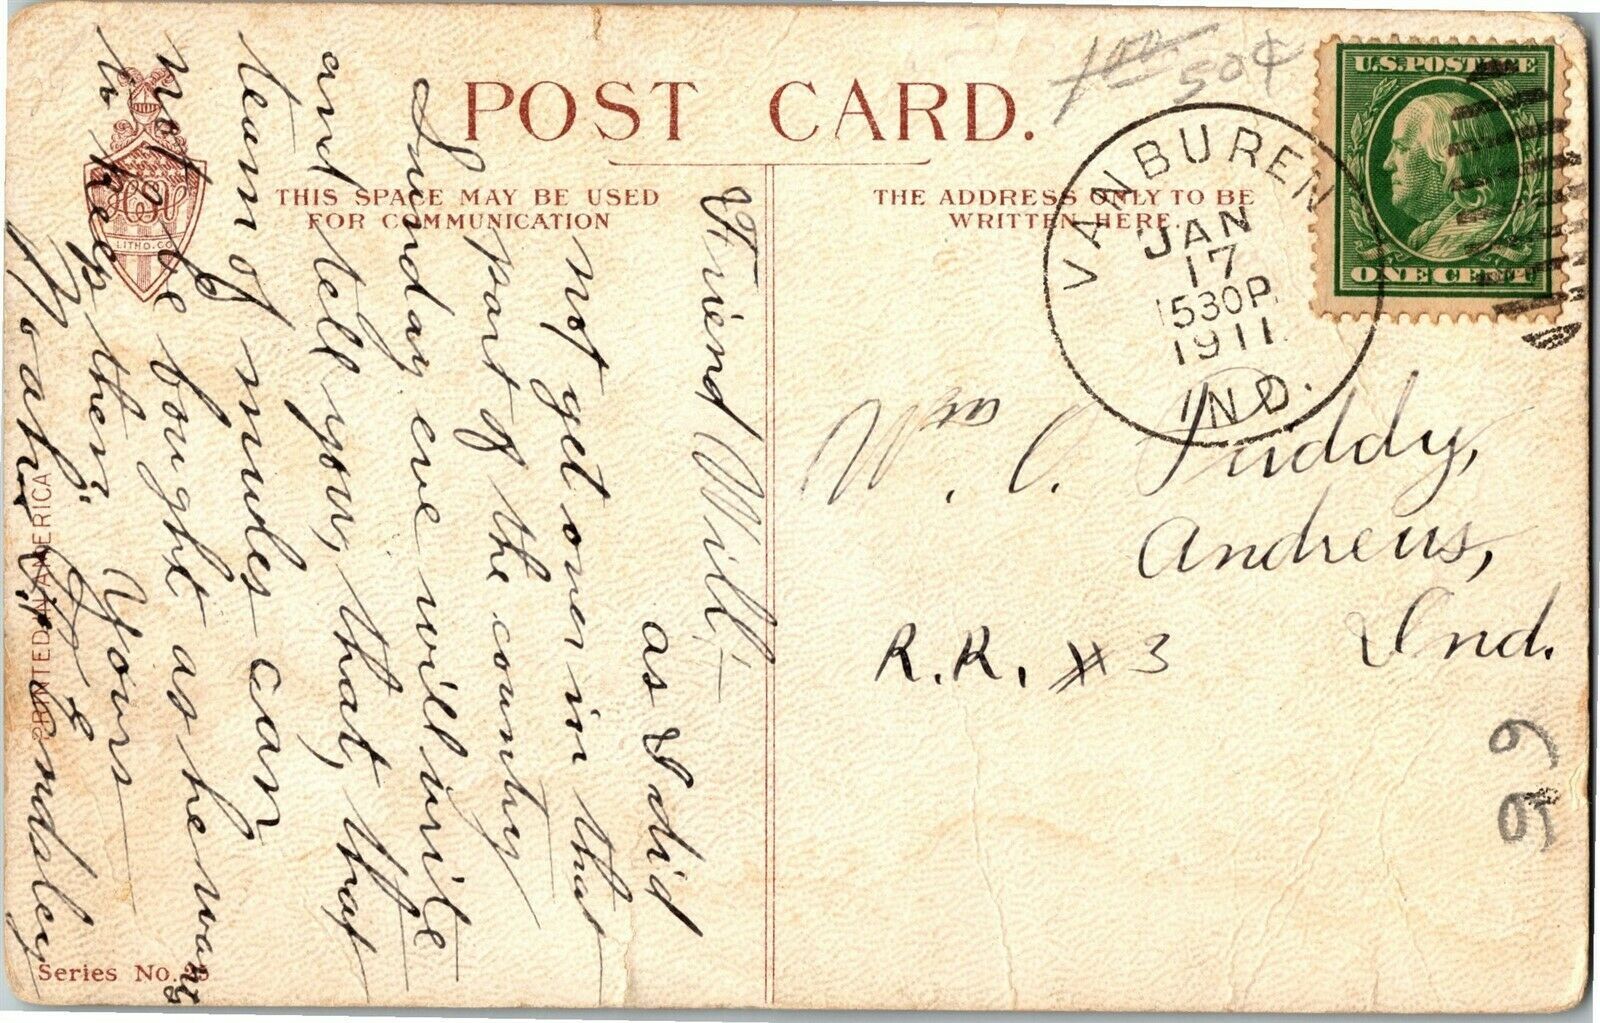 POST CARD.
THIS SPACE MAY BE USED
FOR COMMUNICATION
THE ADDRESS ONLY TO BE
WRITTEN HERE.
1 00
50¢
U.S. POSTAGE
ONE CENT
VAN BUREN
JAN
17
530P
1911
IND.
Wm. O. Puddy,
Andrews,
Ind.
R.R. #3
99
LITHO. CO.
PRINTED IN AMERICA
Series No. 25
Friend Will:-
as I did
not get over in that
part of the country
Sunday eve will write
and tell you, that, that
team of mules can
not be bought as he wants
to keep them. Yours